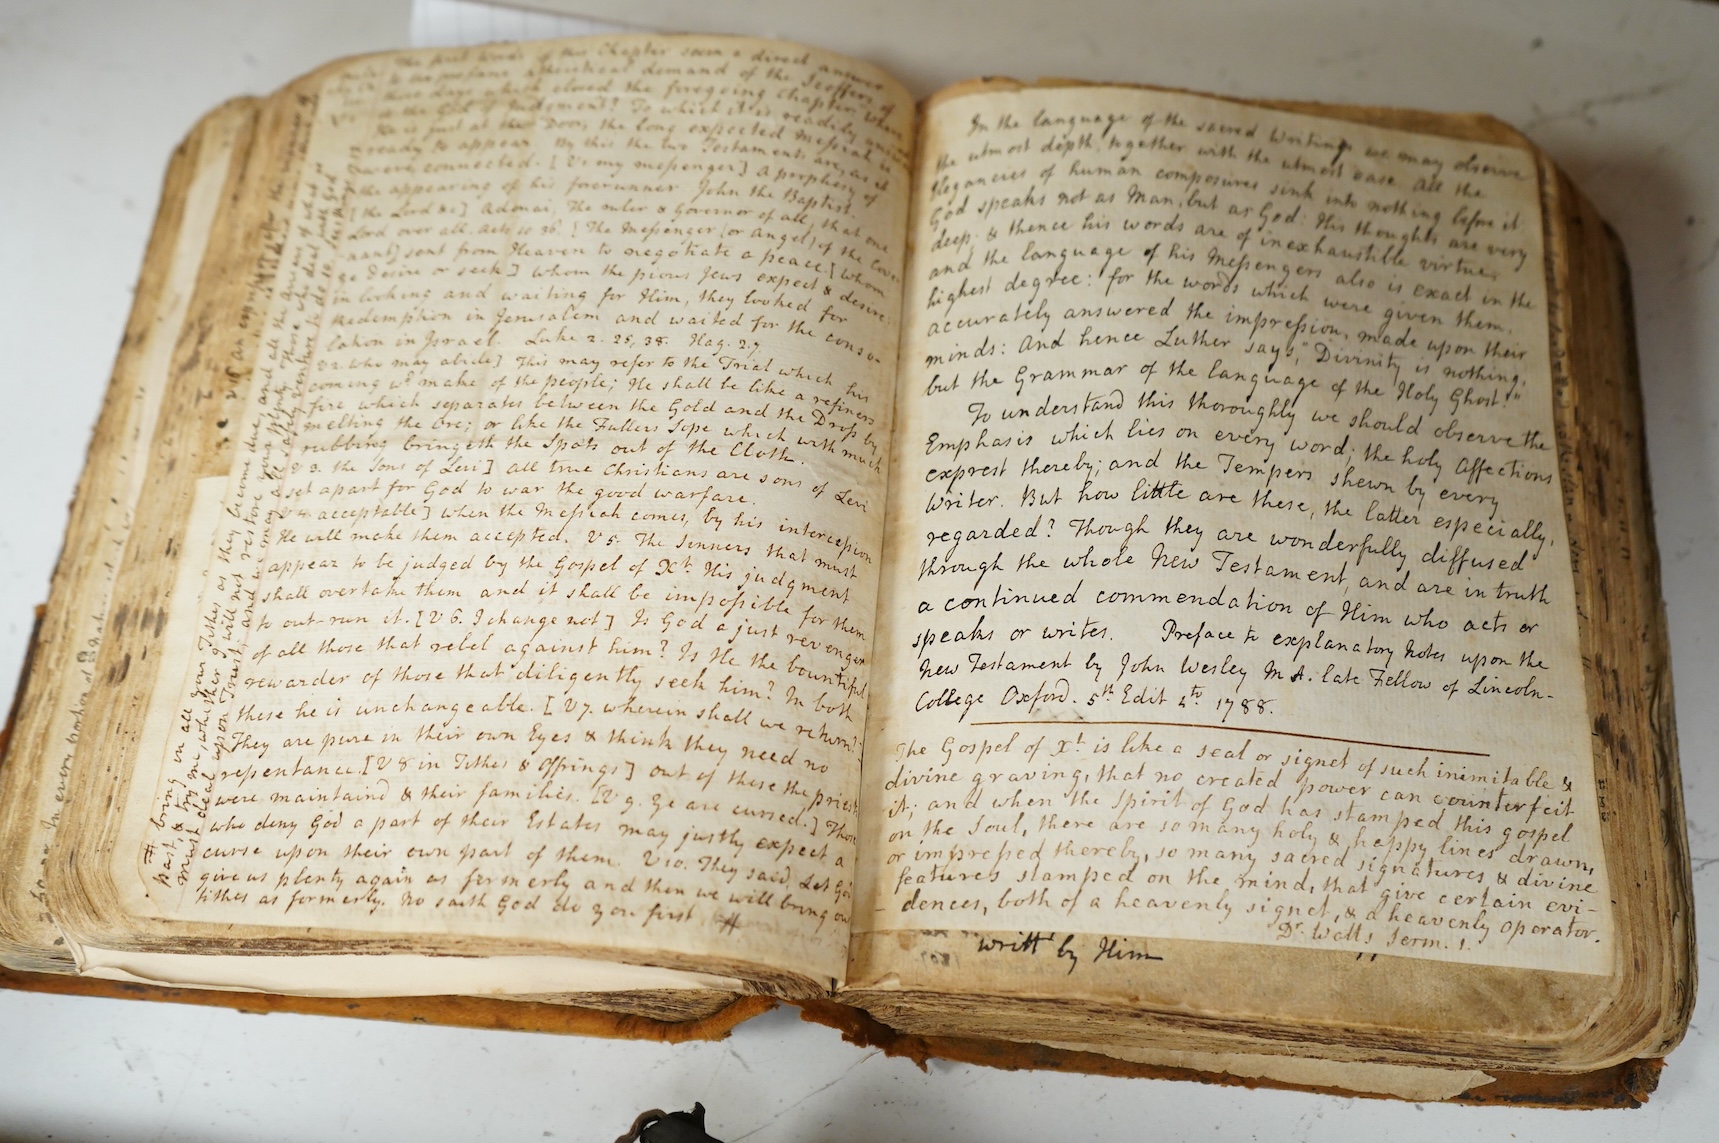 The first words of this Chapter seem a direct answer
to the profane atheistical demand of the Scoffers of
those days which closed the foregoing Chapter, Where
is the God of Judgement? To which it is readily
He is just at the Door; the long expected Messiah is
ready to appear. By this the two Testaments are, as it
were connected. [V 1. my messenger] A prophesy of
the appearing of his forerunner John the Baptist.
[the Lord &c] Adonai, The ruler & Governor of all, that one
Lord over all. Acts 10. 36. [The Messenger (or Angel) of the Cove-
nant] sent from Heaven to negotiate a peace. [whom
ye desire or seek] whom the pious Jews expect & desire.
in looking and waiting for Him, they looked for
Redemption in Jerusalem and waited for the conso-
lation in Israel. Luke 2. 25, 38. Hag. 2. 7
V 2. who may abide] This may refer to the Trial which his
coming wd. make of the people; He shall be like a refiners
fire which separates between the Gold and the Dross by
melting the Ore; or like the Fullers Sope which with much
rubbing bringeth the Spots out of the Cloth.
V 3. the Sons of Levi] all true Christians are sons of Levi
set apart for God to war the good warfare.
V 4 acceptable] when the Messiah comes, by his intercession
He will make them accepted. V 5. The Sinners that must
appear to be judged by the Gospel of Xt. His judgment
shall overtake them and it shall be impossible for them
to out-run it. [V 6. I change not] Is God a just revenger
of all those that rebel against him? Is He the bountiful
rewarder of those that diligently seek him? In both
these he is unchangeable. [V 7. wherein shall we return?
They are pure in their own Eyes & think they need no
repentance. [V 8 in Tithes & Offrings] out of these the priests
were maintaind & their families. [V 9. ye are cursed.] Those
who deny God a part of their Estates may justly expect a
curse upon their own part of them. V 10. They said, Let God
give us plenty again as formerly and then we will bring our
tithes as formerly. No saith God do you first #
# bring in all your Tithes as they become due, and all the arrears of what is
past, & try me, whether I will not restore your plenty. Those who deal with God
must deal upon Trust; and we may all safely venture to do so.
In the language of the sacred Writings we may observe
the utmost depth, together with the utmost ease. All the
Elegancies of human composures sink into nothing before it:
God speaks not as Man, but as God: His thoughts are very
deep; & thence his words are of inexhaustible virtue.
and the language of his Messengers also is exact in the
highest degree: for the words which were given them.
accurately answered the impression, made upon their
minds: And hence Luther says, "Divinity is nothing,
but the Grammar of the language of the Holy Ghost."
To understand this thoroughly we should observe the
Emphasis which lies on every word; the holy Affections
exprest thereby; and the Tempers shewn by every
Writer. But how little are these, the latter especially,
regarded? Though they are wonderfully diffused
through the whole New Testament, and are in truth
a continued commendation of Him who acts or
speaks or writes. Preface to explanatory Notes upon the
New Testament by John Wesley M.A. late Fellow of Lincoln-
College Oxford. 5th Edit 4to 1788.
The Gospel of Xt. is like a seal or signet of such inimitable &
divine graving, that no created power can counterfeit
it; and when the Spirit of God has stamped this gospel
on the Soul, there are so many holy & happy lines drawn,
or impressed thereby, so many sacred signatures & divine
features stamped on the mind, that give certain evi-
dences, both of a heavenly signet, & a heavenly operator.
Dr. Watts Serm. 1.
writt by Him